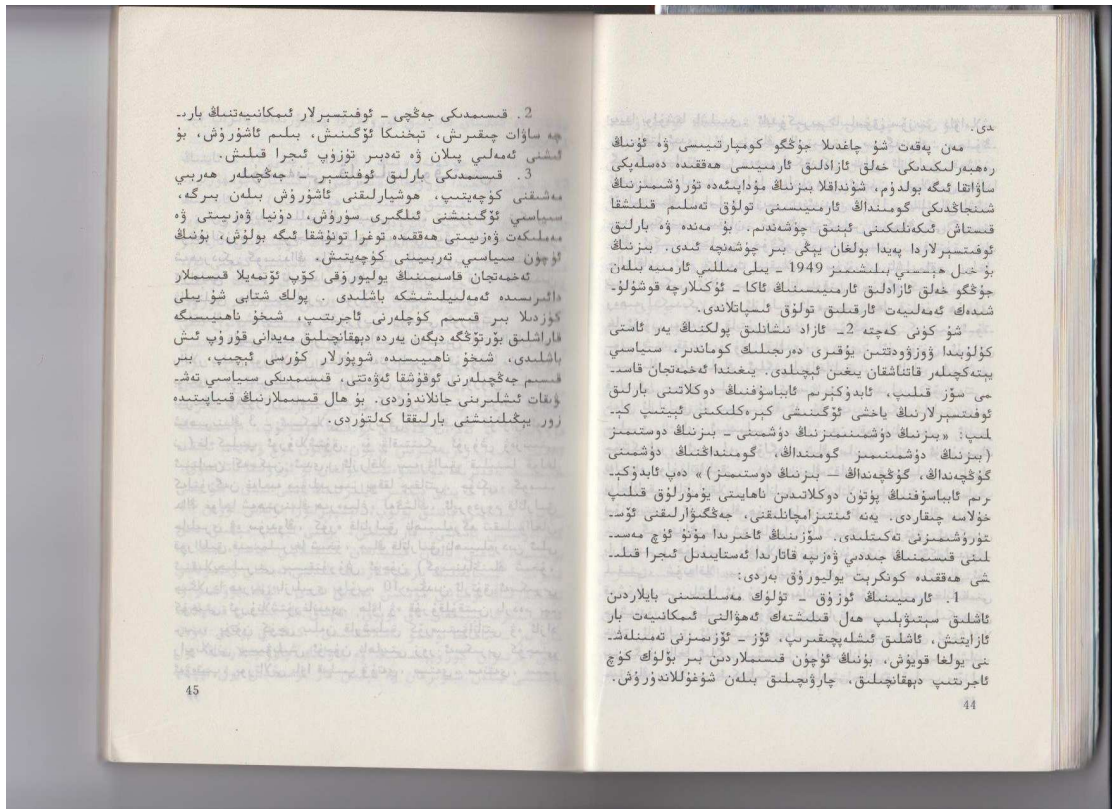 دى.
مەن پەقەت شۇ چاغدىلا جۇڭگو كومپارتىيىسى ۋە ئۇنىڭ
رەھبەرلىكىدىكى خەلق ئازادلىق ئارمىيىسى ھەققىدە دەسلەپكى
ساۋاتقا ئىگە بولدۇم، شۇنداقلا بىزنىڭ مۇداپىئەدە تۇرۇشىمىزنىڭ
شىنجاڭدىكى گومىنداڭ ئارمىيىسىنى تولۇق تەسلىم قىلىشقا
قىستاش ئىكەنلىكىنى ئېنىق چۈشەندىم. بۇ مەندە ۋە بارلىق
ئوفىتسېرلاردا پەيدا بولغان يېڭى بىر چۈشەنچە ئىدى. بىزنىڭ
بۇ خىل ھېسسىي بىلىشىمىز 1949 - يىلى مىللىي ئارمىيە بىلەن
جۇڭگو خەلق ئازادلىق ئارمىيىسىنىڭ ئاكا - ئۇكىلارچە قوشۇلۇ-
شىدەك ئەمەلىيەت ئارقىلىق تولۇق ئىسپاتلاندى.
شۇ كۈنى كەچتە 2- ئازاد نىشانلىق پولكنىڭ يەر ئاستى
كۇلۇبىدا ۋوزۋودتىن يۇقىرى دەرىجىلىك كوماندىر، سىياسىي
يېتەكچىلەر قاتناشقان يىغىن ئېچىلدى. يىغىندا ئەخمەتجان قاسى-
مى سۆز قىلىپ، ئابدۇكېرىم ئابباسوفنىڭ دوكلاتىنى بارلىق
ئوفىتسېرلارنىڭ ياخشى ئۆگىنىشى كېرەكلىكىنى ئېيتىپ كې-
لىپ: «بىزنىڭ دۈشمىنىمىزنىڭ دۈشمىنى - بىزنىڭ دوستىمىز
(بىزنىڭ دۈشمىنىمىز گومىنداڭ، گومىنداڭنىڭ دۈشمىنى
گۇڭچەنداڭ، گۇڭچەنداڭ - بىزنىڭ دوستىمىز)» دەپ ئابدۇكې-
رىم ئابباسوفنىڭ پۈتۈن دوكلاتىدىن ناھايىتى يۇمۇرلۇق قىلىپ
خۇلاسە چىقاردى. يەنە ئىنتىزامچانلىقنى، جەڭگىۋارلىقنى ئۆس-
تۈرۈشىمىزنى تەكىتلىدى. سۆزىنىڭ ئاخىرىدا مۇنۇ ئۈچ مەسى-
لىنى قىسىمنىڭ جىددىي ۋەزىپە قاتارىدا ئەستايىدىل ئىجرا قىلى-
شى ھەققىدە كونكرېت يوليورۇق بەردى:
1. ئارمىيىنىڭ ئوزۇق - تۈلۈك مەسىلىسىنى بايلاردىن
ئاشلىق سېتىۋېلىپ ھەل قىلىشتەك ئەھۋالنى ئىمكانىيەت بار
ئازايتىش، ئاشلىق ئىشلەپچىقىرىپ، ئۆز - ئۆزىمىزنى تەمىنلەش-
نى يولغا قويۇش، بۇنىڭ ئۈچۈن قىسىملاردىن بىر بۆلۈك كۈچ
ئاجرىتىپ دېھقانچىلىق، چارۋىچىلىق بىلەن شۇغۇللاندۇرۇش.
44
2. قىسىمدىكى جەڭچى - ئوفىتسېرلار ئىمكانىيەتنىڭ بارى-
چە ساۋات چىقىرىش، تېخنىكا ئۆگىنىش، بىلىم ئاشۇرۇش، بۇ
ئىشنى ئەمەلىي پىلان ۋە تەدبىر تۈزۈپ ئىجرا قىلىش.
3. قىسىمدىكى بارلىق ئوفىتسېر - جەڭچىلەر ھەربىي
مەشىقنى كۈچەيتىپ، ھوشيارلىقنى ئاشۇرۇش بىلەن بىرگە،
سىياسىي ئۆگىنىشنى ئىلگىرى سۈرۈش، دۇنيا ۋەزىيىتى ۋە
مەملىكەت ۋەزىيىتى ھەققىدە توغرا تونۇشقا ئىگە بولۇش، بۇنىڭ
ئۈچۈن سىياسىي تەربىيىنى كۈچەيتىش.
ئەخمەتجان قاسىمىنىڭ يوليورۇقى كۆپ ئۆتمەيلا قىسىملار
دائىرىسىدە ئەمەلىيلىشىشكە باشلىدى. پولك شتابى شۇ يىلى
كۈزدىلا بىر قىسىم كۈچلەرنى ئاجرىتىپ، شىخۇ ناھىيىسىگە
قاراشلىق بۆرتۆڭگە دېگەن يەردە دېھقانچىلىق مەيدانى قۇرۇپ ئىش
باشلىدى، شىخۇ ناھىيىسىدە شوپۇرلار كۇرسى ئېچىپ، بىر
قىسىم جەڭچىلەرنى ئوقۇشقا ئەۋەتتى، قىسىمدىكى سىياسىي تەش-
ۋىقات ئىشلىرىنى جانلاندۇردى. بۇ ھال قىسىملارنىڭ قىياپىتىدە
زور يېڭىلىنىشنى بارلىققا كەلتۈردى.
45